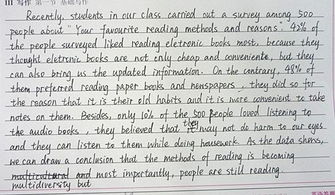 III 写作 第一节 基础写作
Recently, students in our class carried out a survey among 500
people about "Your favourite reading methods and reasons". 43% of
the people surveyed liked reading eletronic books most, because they
thought eletronic books are not only cheap and convenience, but they
can also bring us the updated information. On the contrary, 48% of
them preferred reading paper books and newspapers, they did so for
the reason that it is their old habits and it is more convenient to take
notes on them. Besides, only 10% of the 500 people loved listening to
the audio books, they believed that they may not do harm to our eyes.
and they can listen to them while doing housework. As the data shows,
we can draw a conclusion that the methods of reading is becoming
multicultural and most importantly, people are still reading.
multidiversity but